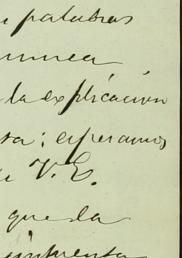 palabras
nunca
la explicacion
ta: esperamos
V. E.
que da
imprenta